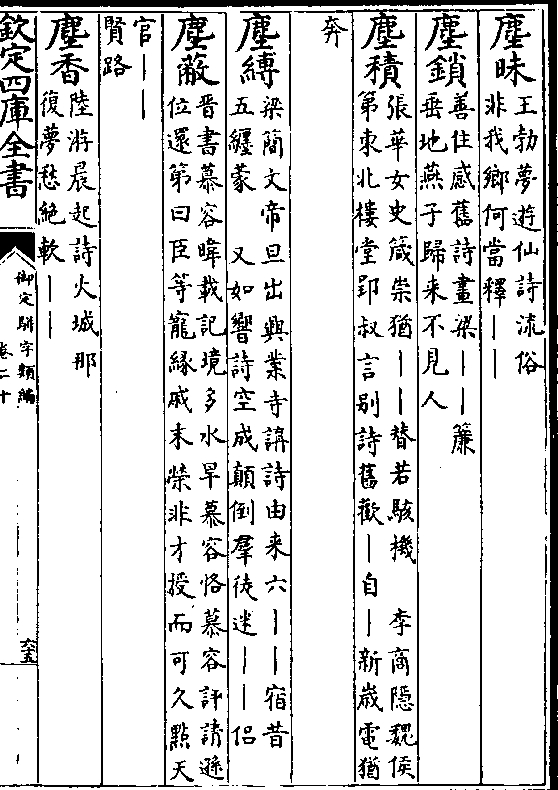 塵昧
王勃夢遊仙詩流俗
非我鄉何當釋丨丨
塵鎖
善住感舊詩畫梁丨丨簾
垂地燕子歸来不見人
塵積
張華女史箴崇猶丨丨替若駭機 李商隱魏侯
第東北樓堂郢叔言别詩舊歡丨自丨新嵗電猶
奔
塵縛
梁簡文帝旦出興業寺講詩由来六丨丨宿昔
五纒蒙 又如響詩空成顛倒羣徒迷丨丨侣
塵蔽
晋書慕容暐載記境多水旱慕容恪慕容評請遜
位還第曰臣等寵緣戚末榮非才授而可久點天
官丨丨
賢路
塵香
陸游晨起詩火城那
復夢愁絶軟丨丨
欽定四庫全書
御定駢字類編
卷二十